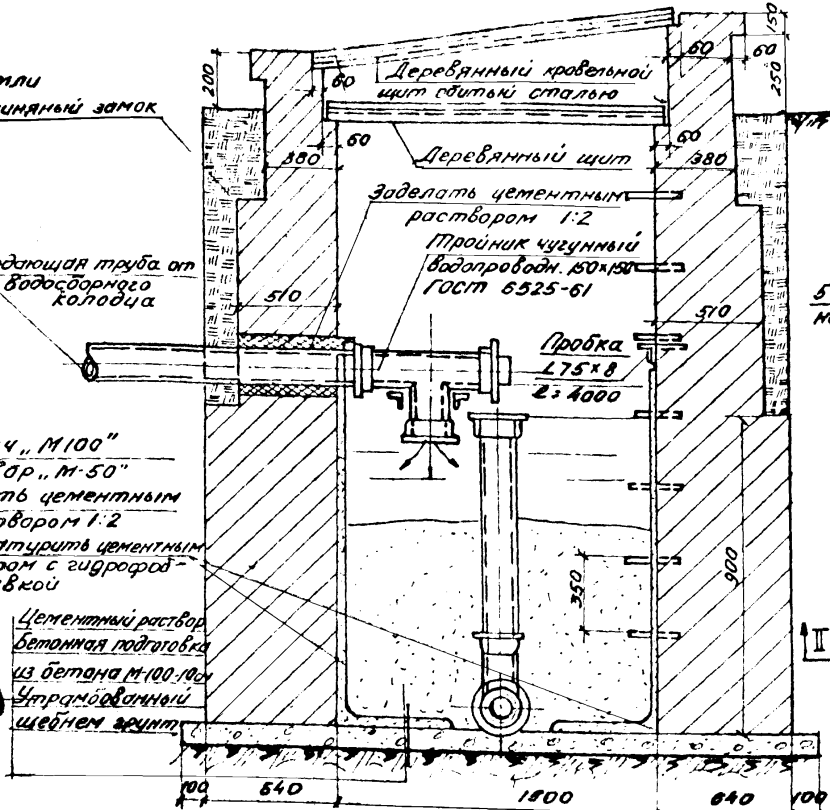 150
60
60
250
200
60
Деревянный кровельной
щит обитый сталью
замок
60
380
60
380
Деревянный щит
Заделать цементным
раствором 1:2
Тройник чугунный
водопроводн. 150×150
ГОСТ 6525-61
труба от
водосборного
колодца
510
510
5
Пробка
L75×8
ℓ=4000
„М100"
„М-50"
цементным
1:2
цементным
с гидрофоб-
350
900
II
Цементный раствор
Бетонная подготовка
из бетона М-100-10см
Утрамбованный
щебнем грунт
100
640
1500
640
100